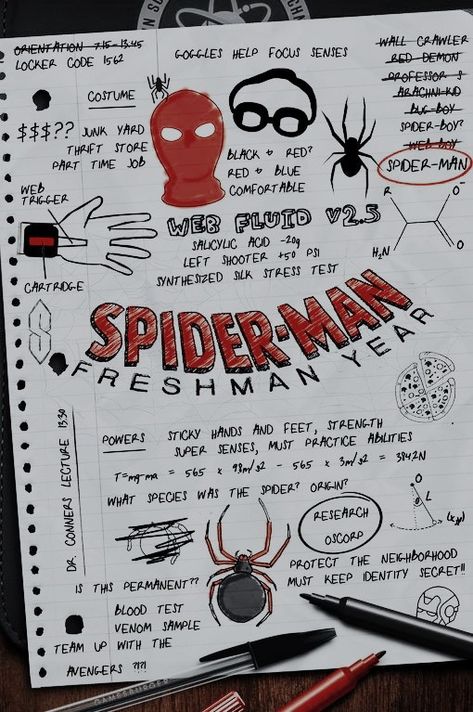 ORIENTATION 7:15-13:45
LOCKER CODE 1562
GOGGLES HELP FOCUS SENSES
WALL CRAWLER
RED DEMON
PROFESSOR S
ARACHNI-KID
BUG-BOY
SPIDER-BOY?
WEB BOY
SPIDER-MAN
COSTUME
$$$?? JUNK YARD
THRIFT STORE
PART TIME JOB
BLACK + RED?
RED + BLUE
COMFORTABLE
WEB
TRIGGER
CARTRIDGE
WEB FLUID V2.5
SALICYLIC ACID -20g
LEFT SHOOTER +50 PSI
SYNTHESIZED SILK STRESS TEST
R
O
H₂N
O
SPIDER-MAN
FRESHMAN YEAR
DR. CONNERS LECTURE 13:30
POWERS STICKY HANDS AND FEET, STRENGTH
SUPER SENSES, MUST PRACTICE ABILITIES
T=mg-ma = 565 x 98m/s2 - 565 x 3m/s2 = 384.2N
WHAT SPECIES WAS THE SPIDER? ORIGIN?
RESEARCH
OSCORP
O
L
(x,y)
IS THIS PERMANENT??
BLOOD TEST
VENOM SAMPLE
TEAM UP WITH THE
AVENGERS ?!?!
PROTECT THE NEIGHBORHOOD
MUST KEEP IDENTITY SECRET!!